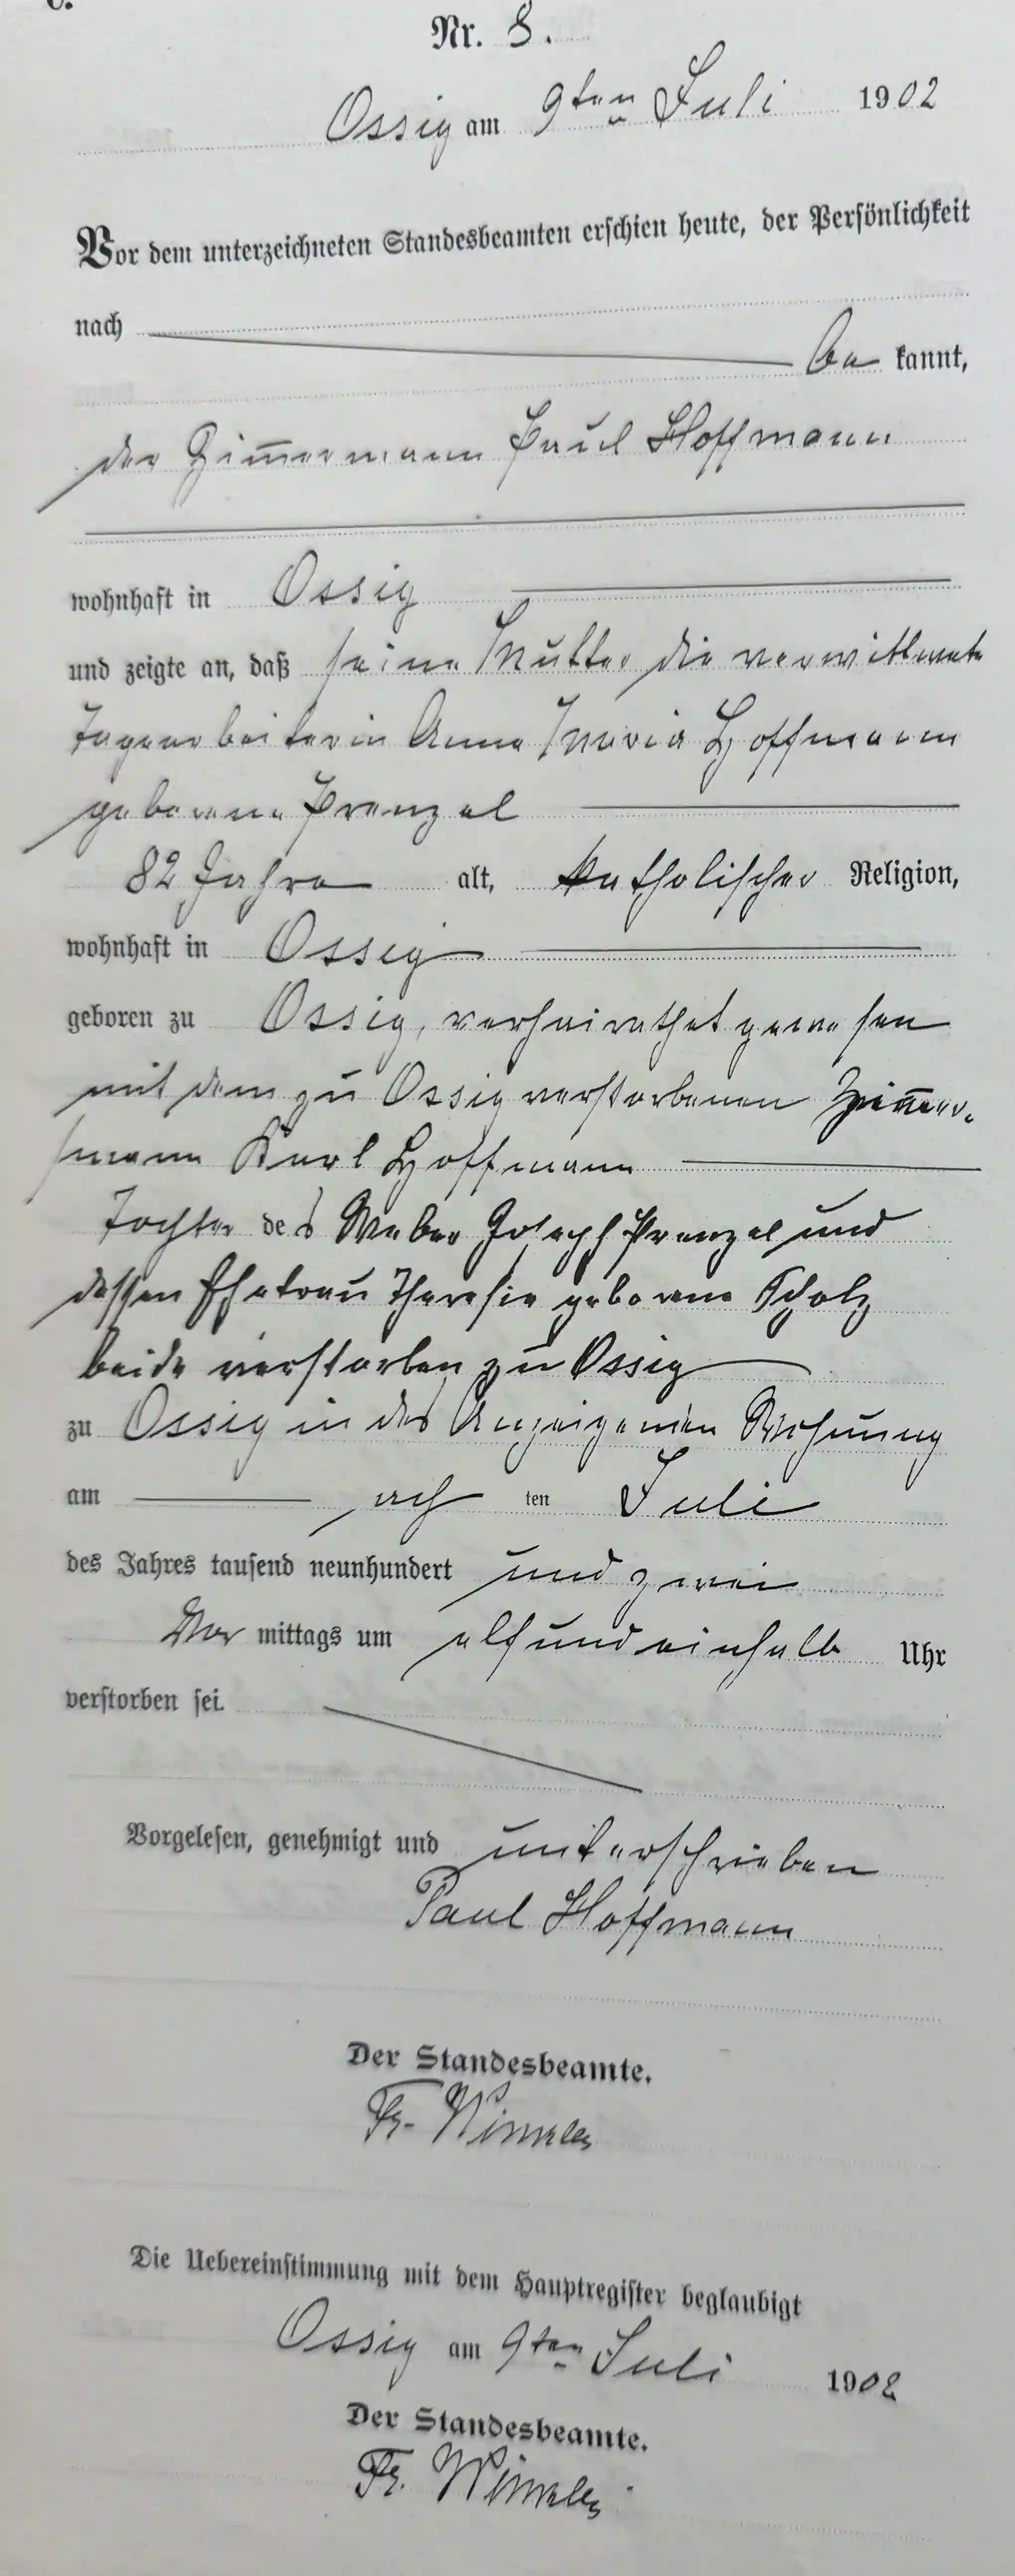 C.
Nr. 8.
Ossig am 9ten Juli 1902
Vor dem unterzeichneten Standesbeamten erschien heute, der Persönlichkeit
nach
be kannt,
der Zim̄ermann Paul Hoffmann
wohnhaft in Ossig
und zeigte an, daß seine Mutter die verwittwete
Tagearbeiterin Anna Maria Hoffmann
geborene Prenzel
82 Jahre alt, katholischer Religion,
wohnhaft in Ossig
geboren zu Ossig, verheirathet gewesen
mit dem zu Ossig verstorbenen Zim̄er-
mann Karl Hoffmann
Tochter des Weber Joseph Prenzel und
dessen Ehefrau Theresie geborene Scholz
beide verstorben zu Ossig
zu Ossig in des Anzeigenden Wohnung
am ach ten Juli
des Jahres tausend neunhundert und zwei
Vor mittags um elf und einhalb Uhr
verstorben sei.
Vorgelesen, genehmigt und unterschrieben
Paul Hoffmann
Der Standesbeamte.
Fr. Winkler
Die Uebereinstimmung mit dem Hauptregister beglaubigt
Ossig am 9ten Juli 1902
Der Standesbeamte.
Fr. Winkler